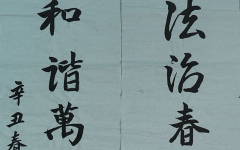 法治春
和谐萬
辛丑春